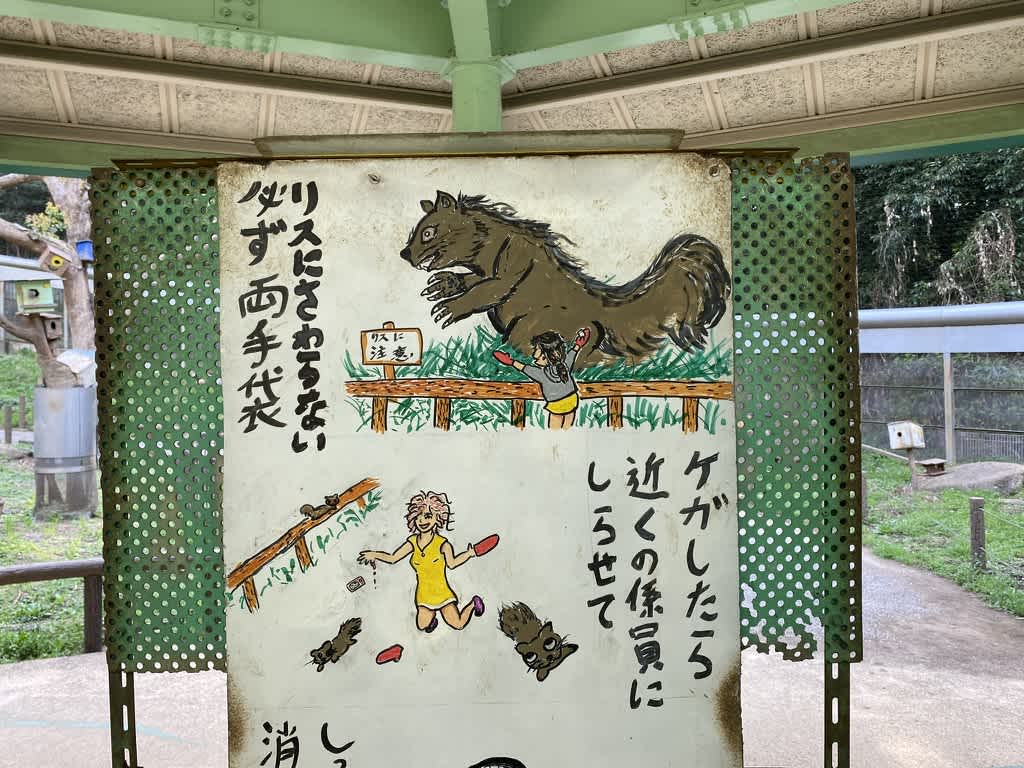 リスにさわらない
必ず両手袋
リスに
注意!
ケガしたら
近くの係員に
しらせて
し
消